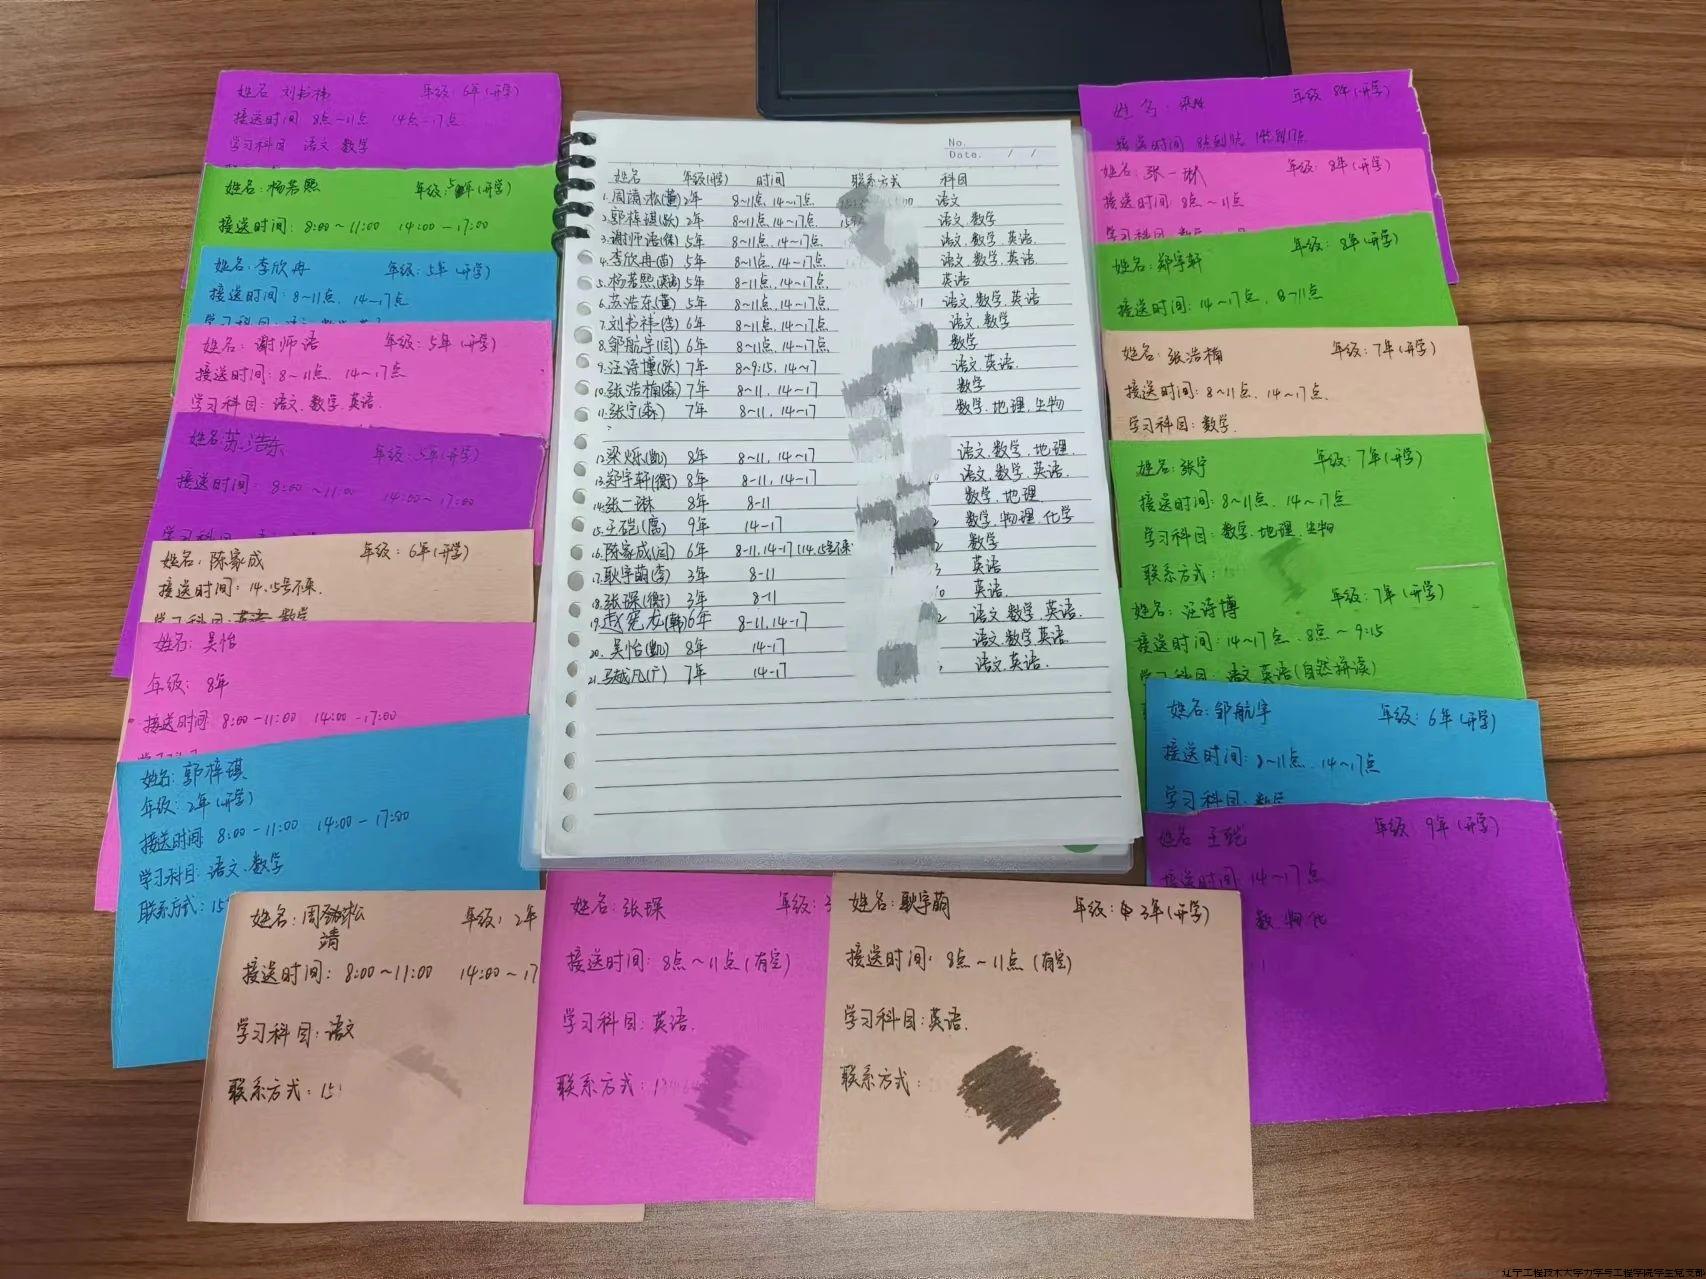 姓名 刘书祎 年级:6年(开学)
接送时间 8点~11点 14点-17点
学习科目 语文 数学
姓名:杨若熙 年级:5年(开学)
接送时间:8:00~11:00 14:00-17:00
姓名:李欣冉 年级:5年(开学)
接送时间:8~11点、14~17点
姓名:谢师语 年级:5年(开学)
接送时间:8~11点、14~17点
学习科目:语文、数学、英语.
姓名:苏浩东 年级:5年(开学)
接送时间:8:00~11:00 14:00~17:00
姓名:陈家成 年级:6年(开学)
接送时间:14、15号不来.
数学
姓名:吴怡
年级:8年
接送时间 8:00-11:00 14:00-17:00
姓名:郭梓琪
年级:2年(开学)
接送时间 8:00-11:00 14:00-17:00
学习科目:语文、数学
联系方式:15
No.
Date. / /
姓名 年级(开学) 时间 联系方式 科目
1.周靖松(董)2年 8~11点、14~17点 语文
2.郭梓琪(欧)2年 8~11点、14~17点 语文、数学
3.谢师语 5年 8~11点、14~17点 语文、数学、英语.
4.李欣冉(苗)5年 8~11点、14~17点 语文、数学、英语.
5.杨若熙 5年 8-11点、14~17点 英语
6.苏浩东(董)5年 8~11点、14~17点 语文、数学、英语
7.刘书祎(李)6年 8~11点、14~17点 语文、数学
8.邹航宇(闫)6年 8~11点、14~17点 数学
9.汪诗博(欧)7年 8~9:15、14~17 语文、英语.
10.张浩楠(森)7年 8~11、14~17 数学
11.张宁(森) 7年 8~11、14~17 数学、地理、生物
12.梁烁(凯) 8年 8~11、14~17 语文、数学、地理
13.郑宇轩(衡)8年 8-11、14-17 语文、数学、英语.
14.张一琳 8年 8-11 数学、地理.
15.王铠 9年 14-17 数学、物理、化学
16.陈家成(闫)6年 8-11、14-17(14、15号不来 数学
17.耿宇萌(李) 3年 8-11 英语
18.张琛(衡) 3年 8-11 英语.
19.赵宪龙(韩)6年 8-11、14-17 语文、数学、英语.
20.吴怡(凯) 8年 14-17 语文、数学、英语
21.马越凡(广) 7年 14-17 语文、英语.
姓名: 年级 8年(开学)
接送时间 8点到11点 14点到17点
姓名:张一琳 年级:8年(开学)
接送时间:8点~11点
学习科目:数学
姓名:郑宇轩 年级:8年(开学)
接送时间:14~17点、8~11点
姓名:张浩楠 年级:7年(开学)
接送时间:8~11点、14~17点.
学习科目:数学.
姓名:张宁 年级:7年(开学)
接送时间:8~11点、14~17点
学习科目:数学、地理、生物
联系方式:
姓名:汪诗博 年级:7年(开学)
接送时间:14~17点、8点~9:15
学习科目:语文 英语(自然拼读)
姓名:邹航宇 年级:6年(开学)
接送时间:8~11点、14~17点
学习科目:数学
姓名 王铠 年级 9年(开学)
接送时间 14~17点
数 物 化
姓名:周松 年级:2年
靖
接送时间:8:00~11:00 14:00~17
学习科目:语文
联系方式:15
姓名:张琛 年级:3
接送时间:8点~11点(有空)
学习科目:英语.
联系方式:
姓名:耿宇萌 年级:3年(开学)
接送时间:8点~11点(有空)
学习科目:英语.
联系方式:
辽宁工程技术大学力学与工程学院学生党支部